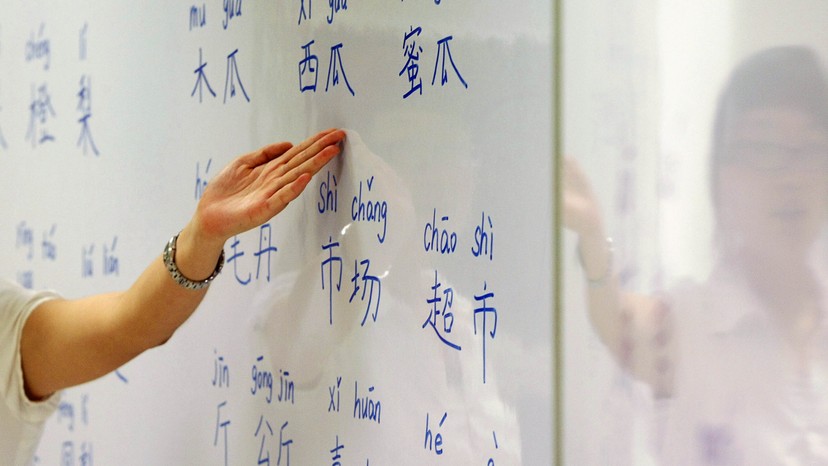 mù guā xī guā
chéng lí
木瓜 西瓜 蜜瓜
橙 梨
hó
shì chǎng chāo shì
毛丹 市场 超市
liú lián
jīn gōng jīn xǐ huān
斤 公斤 喜
hé
lí
梨